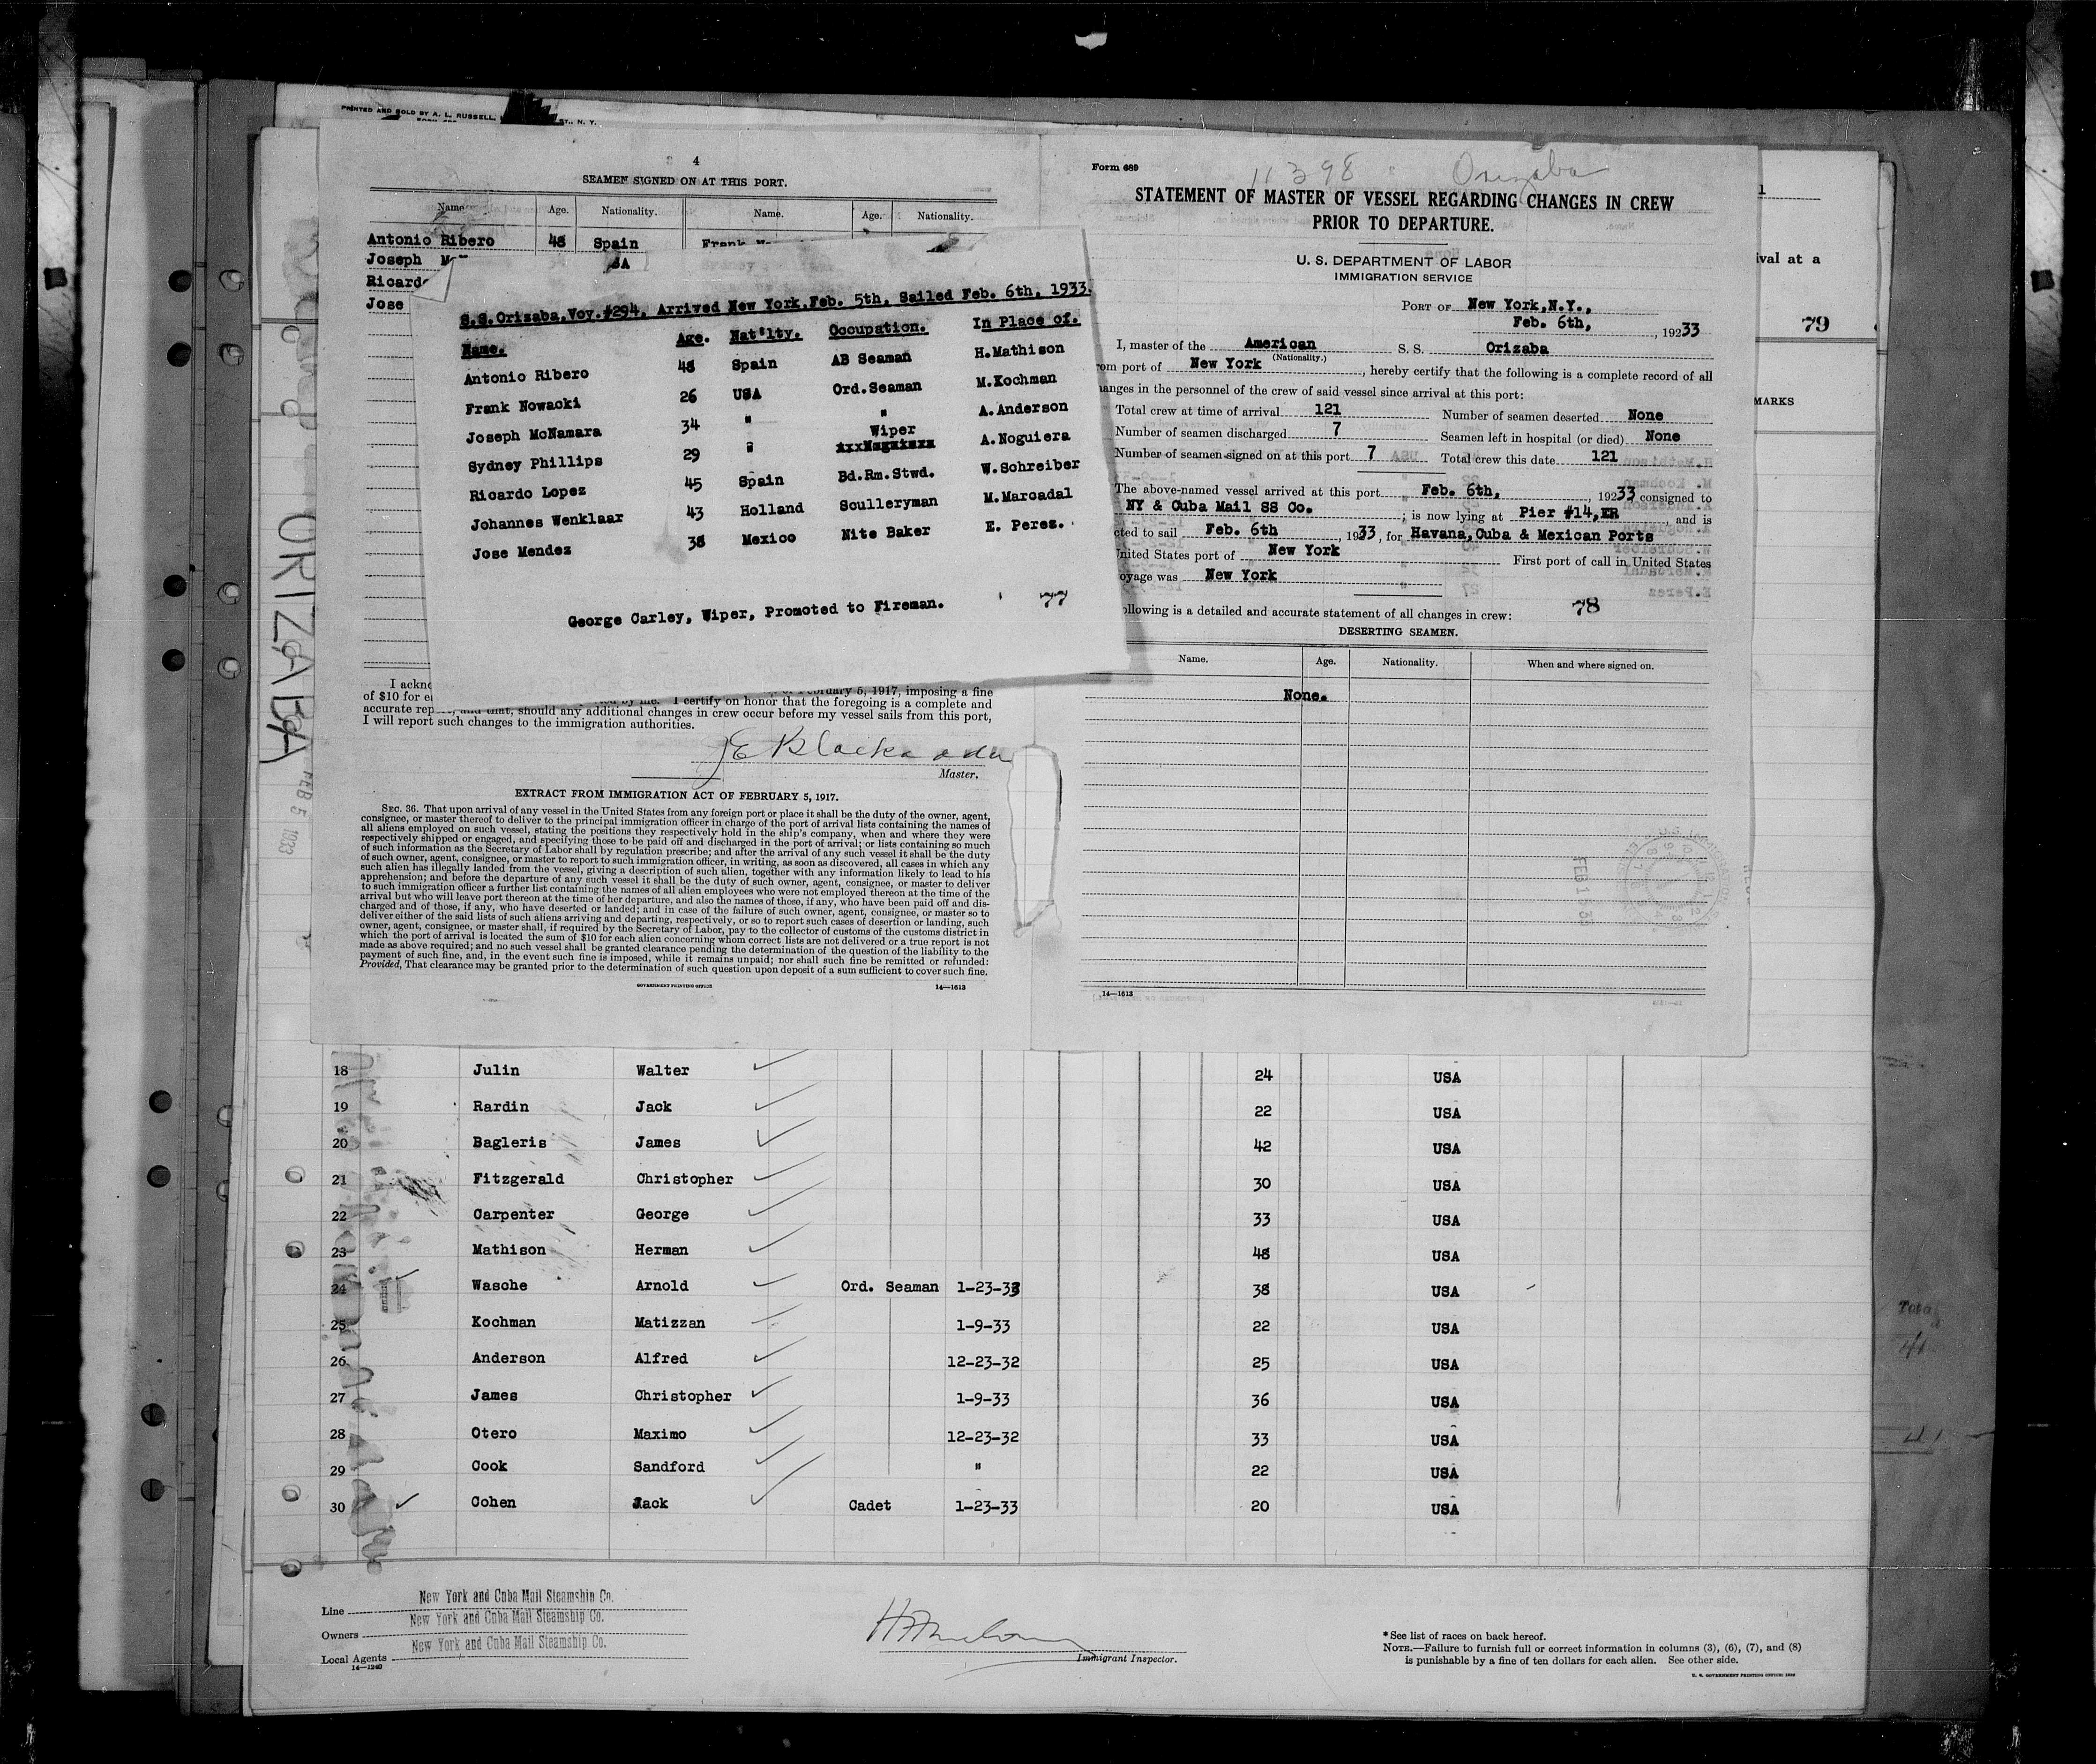 PRINTED AND SOLD BY A. L. RUSSELL, ST., N. Y.
4
SEAMEN SIGNED ON AT THIS PORT.
Name. Age. Nationality. Name. Age. Nationality.
Antonio Ribero 48 Spain Frank
Joseph
Ricardo
Jose
S.S.Orizaba,Voy.#294, Arrived New York,Feb. 5th, Sailed Feb. 6th, 1933.
Name. Age. Nat'lty. Occupation. In Place of.
Antonio Ribero 48 Spain AB Seaman H.Mathison
Frank Nowacki 26 USA Ord.Seaman M.Kochman
Joseph McNamara 34 " " A.Anderson
Sydney Phillips 29 " Wiper A.Noguiera
Ricardo Lopez 45 Spain Bd.Rm.Stwd. W.Schreiber
Johannes Wenklaar 43 Holland Sculleryman M.Marcadal
Jose Mendez 38 Mexico Nite Baker E. Perez.
George Carley, Wiper, Promoted to Fireman. 77
I ackno
of $10 for e 5, 1917, imposing a fine
by me. I certify on honor that the foregoing is a complete and
accurate rep and that, should any additional changes in crew occur before my vessel sails from this port,
I will report such changes to the immigration authorities.
Master.
EXTRACT FROM IMMIGRATION ACT OF FEBRUARY 5, 1917.
SEC. 36. That upon arrival of any vessel in the United States from any foreign port or place it shall be the duty of the owner, agent,
consignee, or master thereof to deliver to the principal immigration officer in charge of the port of arrival lists containing the names of
all aliens employed on such vessel, stating the positions they respectively hold in the ship's company, when and where they were
respectively shipped or engaged, and specifying those to be paid off and discharged in the port of arrival; or lists containing so much
of such information as the Secretary of Labor shall by regulation prescribe; and after the arrival of any such vessel it shall be the duty
of such owner, agent, consignee, or master to report to such immigration officer, in writing, as soon as discovered, all cases in which any
such alien has illegally landed from the vessel, giving a description of such alien, together with any information likely to lead to his
apprehension; and before the departure of any such vessel it shall be the duty of such owner, agent, consignee, or master to deliver
to such immigration officer a further list containing the names of all alien employees who were not employed thereon at the time of the
arrival but who will leave port thereon at the time of her departure, and also the names of those, if any, who have been paid off and dis-
charged and of those, if any, who have deserted or landed; and in case of the failure of such owner, agent, consignee, or master so to
deliver either of the said lists of such aliens arriving and departing, respectively, or so to report such cases of desertion or landing, such
owner, agent, consignee, or master shall, if required by the Secretary of Labor, pay to the collector of customs of the customs district in
which the port of arrival is located the sum of $10 for each alien concerning whom correct lists are not delivered or a true report is not
made as above required; and no such vessel shall be granted clearance pending the determination of the question of the liability to the
payment of such fine, and, in the event such fine is imposed, while it remains unpaid; nor shall such fine be remitted or refunded:
Provided, That clearance may be granted prior to the determination of such question upon deposit of a sum sufficient to cover such fine.
GOVERNMENT PRINTING OFFICE 14—1613
Form 689 11398 Orizaba
STATEMENT OF MASTER OF VESSEL REGARDING CHANGES IN CREW
PRIOR TO DEPARTURE.
U. S. DEPARTMENT OF LABOR
IMMIGRATION SERVICE
PORT OF New York,N.Y.,
Feb. 6th, , 19233
I, master of the American S. S. Orizaba
(Nationality.)
om port of New York , hereby certify that the following is a complete record of all
hanges in the personnel of the crew of said vessel since arrival at this port:
Total crew at time of arrival 121 Number of seamen deserted None
Number of seamen discharged 7 Seamen left in hospital (or died) None
Number of seamen signed on at this port 7 Total crew this date 121
The above-named vessel arrived at this port Feb. 6th, , 19233 consigned to
NY & Cuba Mail SS Co. ; is now lying at Pier #14,ER and is
cted to sail Feb. 6th , 1933, for Havana,Cuba & Mexican Ports
United States port of New York First port of call in United States
oyage was New York
ollowing is a detailed and accurate statement of all changes in crew: 78
DESERTING SEAMEN.
Name. Age. Nationality. When and where signed on.
None.
14—1613
FEB 1
1
ival at a
79
MARKS
ORIZABA
FEB 5 1933
18 Julin Walter 24 USA
19 Rardin Jack 22 USA
20 Bagleris James 42 USA
21 Fitzgerald Christopher 30 USA
22 Carpenter George 33 USA
23 Mathison Herman 48 USA
24 Wasche Arnold Ord. Seaman 1-23-33 38 USA
25 Kochman Matizzan 1-9-33 22 USA
26 Anderson Alfred 12-23-32 25 USA
27 James Christopher 1-9-33 36 USA
28 Otero Maximo 12-23-32 33 USA
29 Cook Sandford " 22 USA
30 Cohen Jack Cadet 1-23-33 20 USA
Line New York and Cuba Mail Steamship Co.
Owners New York and Cuba Mail Steamship Co.
Local Agents New York and Cuba Mail Steamship Co.
14—1240
Immigrant Inspector.
* See list of races on back hereof.
NOTE.—Failure to furnish full or correct information in columns (3), (6), (7), and (8)
is punishable by a fine of ten dollars for each alien. See other side.
U. S. GOVERNMENT PRINTING OFFICE: